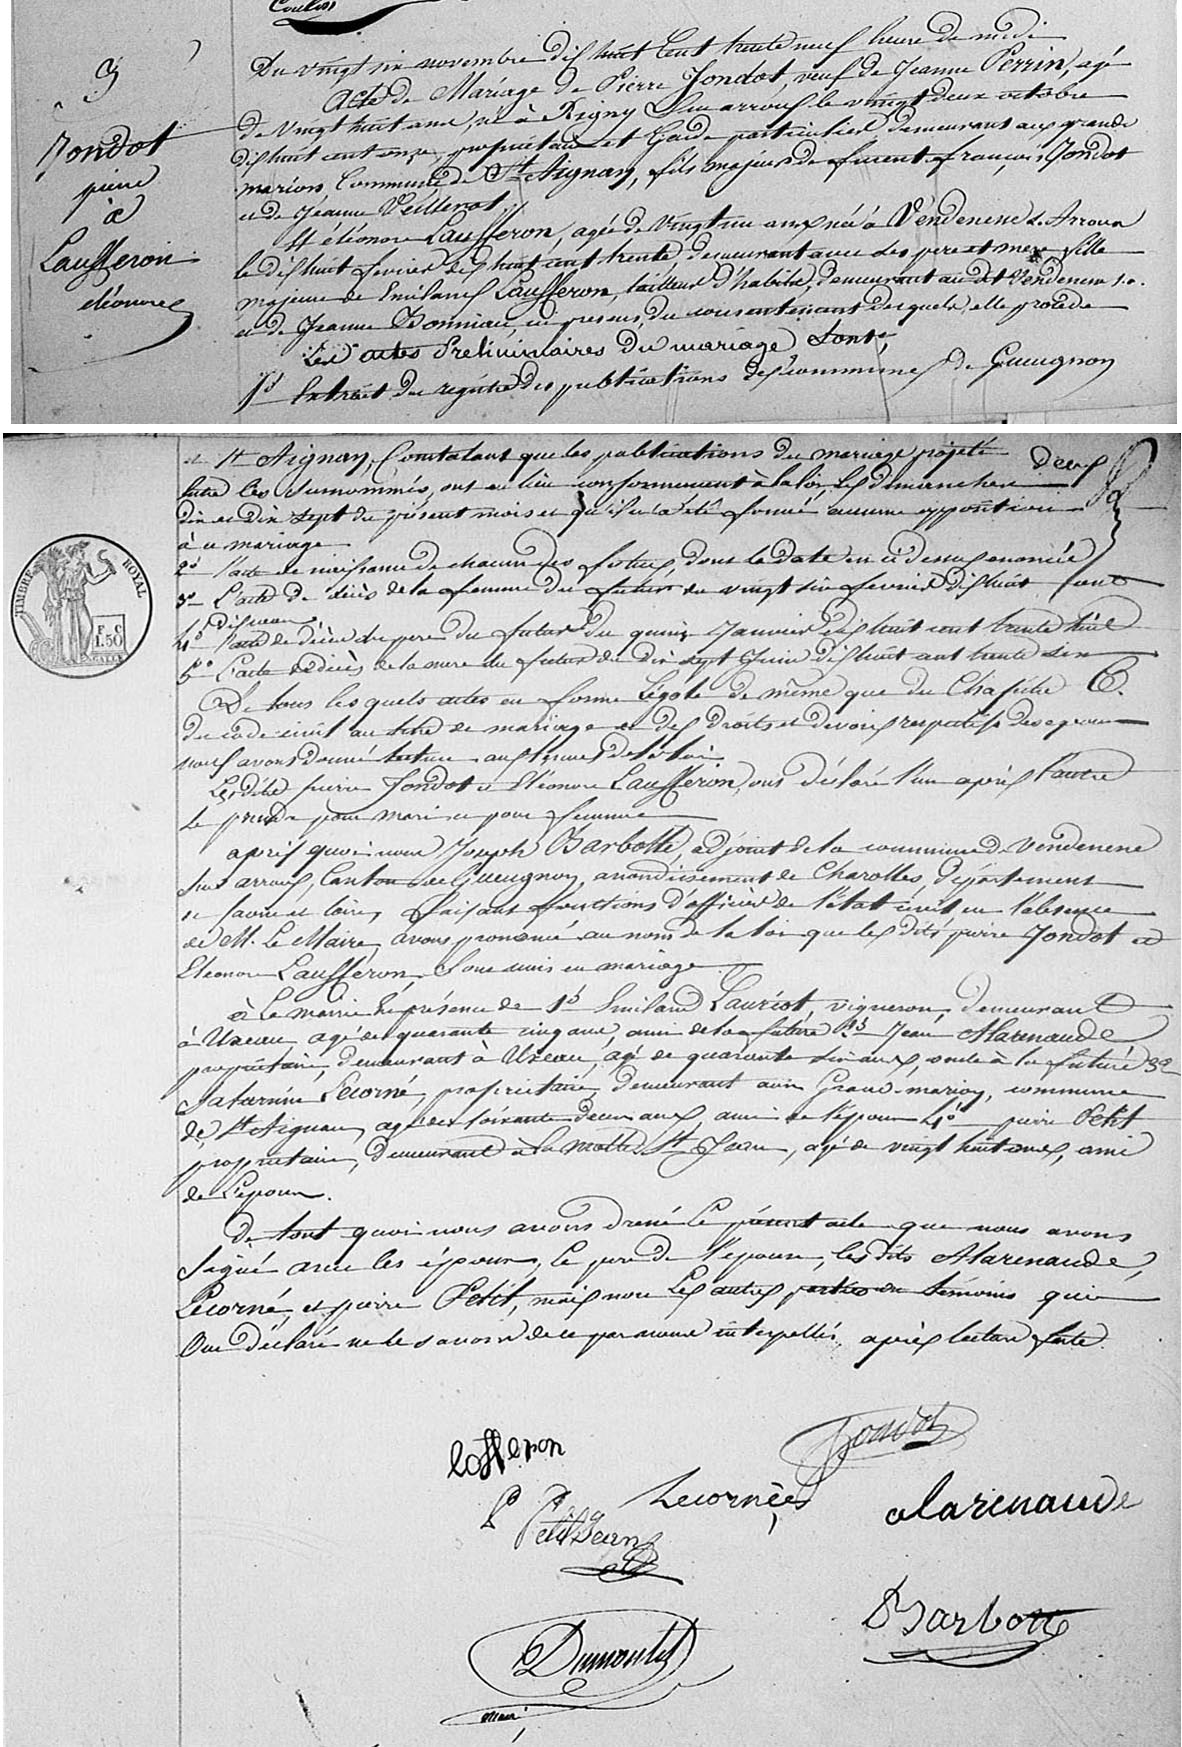 Coulon
9
Jondot
pierre
à
Lausseron
eléonore
Du vingt six novembre dix huit Cent trente neuf heure de midi
Acte de Mariage de Pierre Jondot, veuf de Jeanne Perrin, agé
de vingt huit ans, né à Rigny Sur arroux le vingt deux octobre
dix huit cent onze, propriétaire et Garde particulier demeurant aux grands
marions Commune de St Aignan, fils majeur de furent françois Jondot
et de Jeanne Veillerot;
Et éléonore Lausseron, agée de vingt un ans née à Vendenesse s. Arroux
le dix huit fevrier dix huit cent trente, demeurant avec ses pere et mere fille
majeure de Emiland Lausseron, tailleur d'habits, demeurant au dit Vendenesse s. a.
et de Jeanne Bonniau, ici presens, du consentement desquels elle procède
Les actes Preliminaires du mariage Sont;
1o Extrait du registre des publications des communes de Gueugnon
et St Aignan, Constatant que les publications du mariage projeté
entre les surnommés, ont eu lieu conformement à la loi, les dimanches
dix et dix sept du présent mois et qu'il n'a été formé aucune opposition
à ce mariage
2o l'acte de naissance de chacun des futurs, dont la date est ci dessus enoncée
3o L'acte de décès de la femme du futur du vingt six fevrier dix huit cent
4o l'acte de décès du pere du futur du quinze Janvier dix huit cent trente huit
5o L'acte de décès de la mere du futur du dix sept Juin dix huit cent trente six
De tous lesquels actes en forme légale de même que du Chapitre 6.
du code civil au titre de mariage et des droits et devoirs respectifs des epoux
nous avons donné lecture aux termes de la loi.
Les dits pierre Jondot et Eléonore Lausseron, ont déclaré l'un après l'autre
se prendre pour mari et pour femme
après quoi nous Joseph Barbotte, adjoint de la commune de Vendenesse
Sur arroux, Canton de Gueugnon, arrondissement de Charolles, département
de saone et loire, faisant fonctions d'officier de l'état civil en l'absence
de M. Le Maire, avons prononcé au nom de la loi que les dits pierre Jondot et
Eléonore Lausseron, Sont unis en mariage
à La mairie En présence de 1o Emiland Lauriot, vigneron, demeurant
à Uxeau, agé de quarante cinq ans, ami de la future 2o Jean Marenaude
propriétaire, demeurant à Uxeau, agé de quarante six ans, oncle à la future 3o
Saturnin Lecorné, propriétaire, demeurant aux Grand marion, commune
de St Aignan, agé de soixante deux ans, ami de l'époux 4o pierre Petit
propriétaire, demeurant à la motte St Jean, agé de vingt huit ans, ami
de l'époux.
de tout quoi nous avons dressé le présent acte que nous avons
Signé avec les époux, le pere de l'épouse, les dits Marenaude,
Lecorné, et pierre Petit, mais non Les autres parties ou témoins qui
Ont déclaré ne le savoir de ce par nous interpellés, après lecture faite.
losseron
Jondot
P Petit Jean
Lecornée
Marenaude
Barbotte
Dumoulet
maire
TIMBRE ROYAL
F. C
1.50